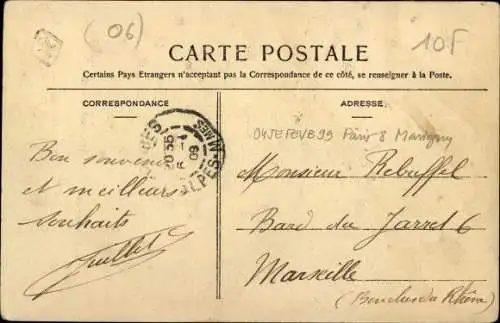 (06)
10F
CARTE POSTALE
Certains Pays Etrangers n'acceptant pas la Correspondance de ce côté, se renseigner à la Poste.
CORRESPONDANCE
ADRESSE:
04JEFEVB99 Paris 8 Marigny
Bon souvenir
et meilleurs
souhaits
Juillet
à
Monsieur Rebuffel
Bard du Jarret 6
Marseille
(Bouches du Rhône)